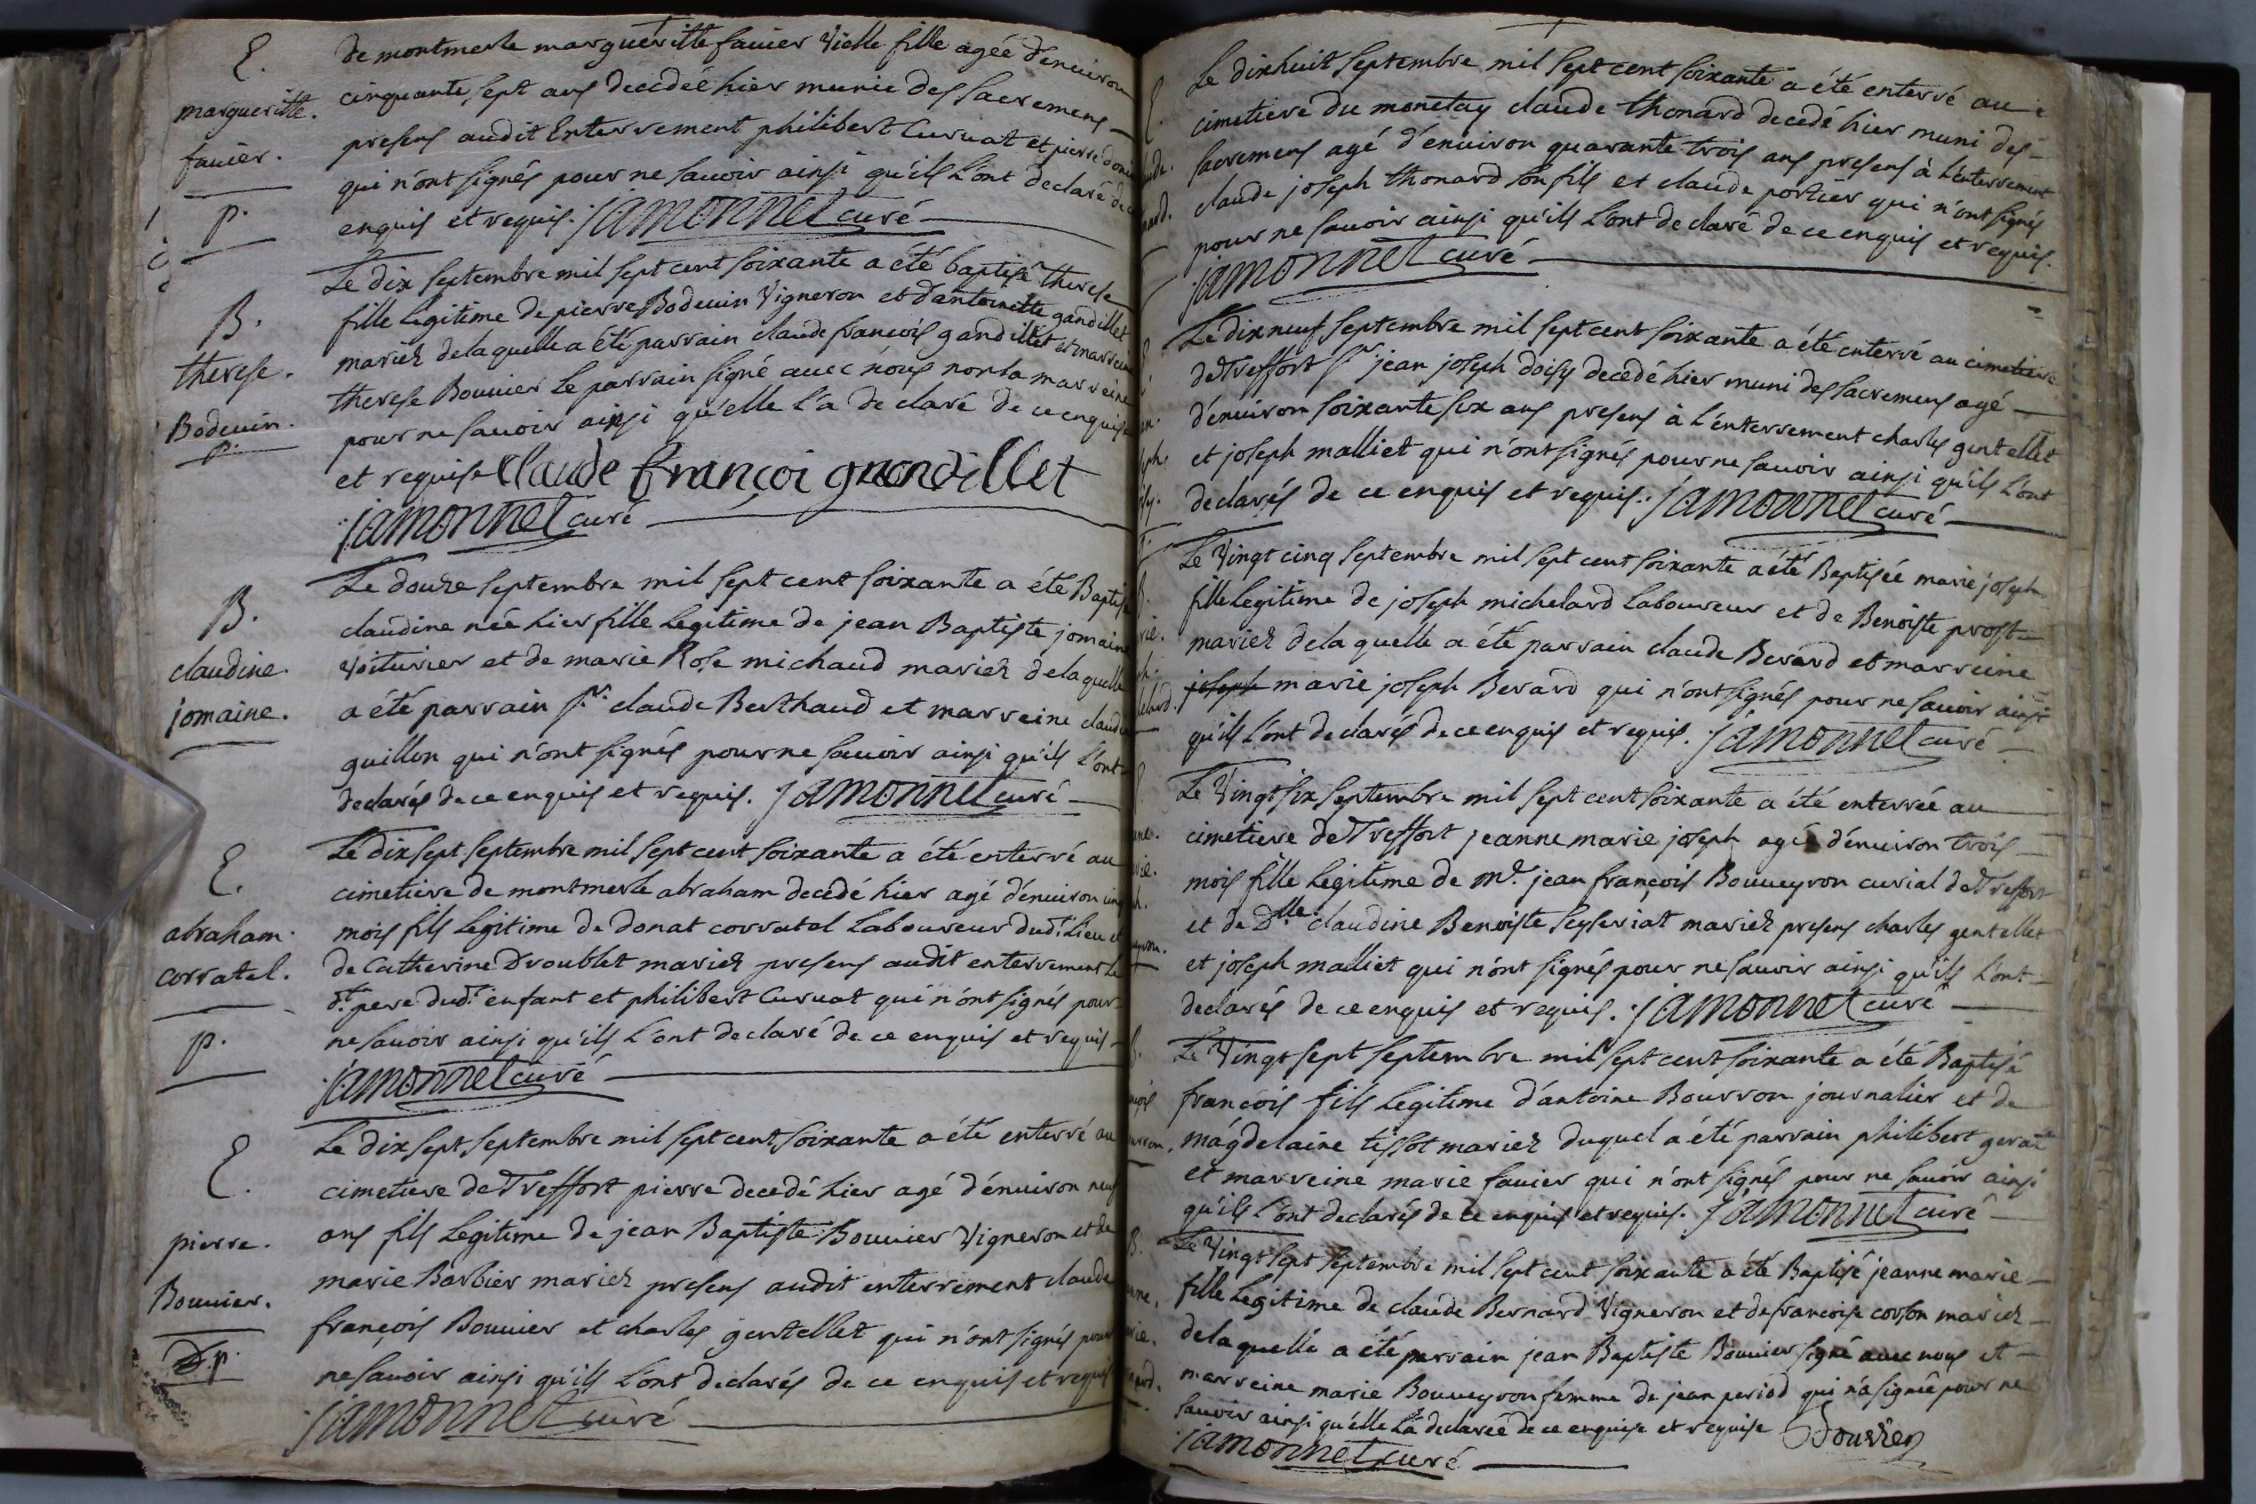 E.
margueritte.
favier.
p.
de montmerle margueritte favier Vielle fille agée d'enuiron
cinquante sept ans decedée hier munie des sacremens
presens audit Enterrement philibert Curuat et pierre
qui n'ont signés pour ne sauoir ainsi qu'ils l'ont declaré de ce
enquis et requis. jamonnet curé
B.
therese.
Bodeuin.
p.
Le dix septembre mil sept cent soixante a été baptisé therese
fille legitime de pierre Bodeuin Vigneron et d'antoinette gandillet
mariez delaquelle a été parrain claude françois gandillet et marreine
therese Bouuier le parrain signé auec nous non la marreine
pour ne sauoir ainsi qu'elle l'a declaré de ce enquise
et requise Claude françoi gnondillet
jamonnet curé
B.
claudine.
jomaine.
Le douze septembre mil sept cent soixante a été Baptisé
claudine née hier fille legitime de jean Baptiste jomaine
Voiturier et de marie Rose michaud mariez delaquelle
a été parrain sr. claude Berthaud et marreine claudine
guillon qui n'ont signés pour ne sauoir ainsi qu'ils l'ont
declarés de ce enquis et requis. jamonnet curé
E.
abraham.
corratel.
p.
Le dix sept septembre mil sept cent soixante a été enterré au
cimetiere de montmerle abraham decedé hier agé d'enuiron cinq
mois fils legitime de donat corratel Laboureur dudt. Lieu et
de Catherine Droublet mariez presens audit enterrement le
dt. pere dudt. enfant et philibert Curuat qui n'ont signés pour
ne sauoir ainsi qu'ils l'ont declaré de ce enquis et requis
jamonnet curé
E.
pierre.
Bouuier.
D.p.
Le dix sept septembre mil sept cent soixante a été enterré au
cimetiere de Treffort pierre decedé hier agé d'enuiron neuf
ans fils legitime de jean Baptiste Bouuier Vigneron et de
marie Barbier mariez presens audit enterrement claude
françois Bouuier et charles gentellet qui n'ont signés pour
ne sauoir ainsi qu'ils l'ont declarés de ce enquis et requis
jamonnet curé
Le dixhuit septembre mil sept cent soixante a été enterré au
cimetiere du monetay claude thonard decedé hier muni des
sacremens agé d'enuiron quarante trois ans presens à l'enterrement
claude joseph thonard son fils et claude portier qui n'ont signés
pour ne sauoir ainsi qu'ils l'ont declaré de ce enquis et requis.
jamonnet curé
Le dix neuf septembre mil sept cent soixante a été enterré au cimetiere
de Treffort sr. jean joseph doisy decedé hier muni des sacremens agé
d'enuiron soixante six ans presens à l'enterrement charles gentellet
et joseph malliet qui n'ont signés pour ne sauoir ainsi qu'ils l'ont
declarés de ce enquis et requis. jamonnet curé
Le Vingt cinq septembre mil sept cent soixante a été Baptisée marie joseph
fille legitime de joseph michelard laboureur et de Benoiste prost
mariez delaquelle a été parrain claude Berard et marreine
joseph marie joseph Berard qui n'ont signés pour ne sauoir ainsi
qu'ils l'ont declarés de ce enquis et requis. jamonnet curé
Le Vingt six septembre mil sept cent soixante a été enterrée au
cimetiere de Treffort jeanne marie joseph agée d'enuiron trois
mois fille legitime de me. jean françois Bouueyron curial de Treffort
et de Dlle. claudine Benoiste seyseriat mariez presens charles gentellet
et joseph malliet qui n'ont signés pour ne sauoir ainsi qu'ils l'ont
declarés de ce enquis et requis. jamonnet curé
Le Vingt sept septembre mil sept cent soixante a été Baptisé
françois fils legitime d'antoine Bourron journalier et de
magdelaine tissot mariez duquel a été parrain philibert gerat
et marreine marie fauier qui n'ont signés pour ne sauoir ainsi
qu'ils l'ont declarés de ce enquis et requis. jamonnet curé
Le Vingt sept septembre mil sept cent soixante a été Baptisé jeanne marie
fille legitime de claude Bernard Vigneron et de françoise corson mariez
delaquelle a été parrain jean Baptiste Bouuier signé auec nous et
marreine marie Bouueyron femme de jean period qui n'a signée pour ne
sauoir ainsi qu'elle l'a declarée de ce enquise et requise Bouvier
jamonnet curé